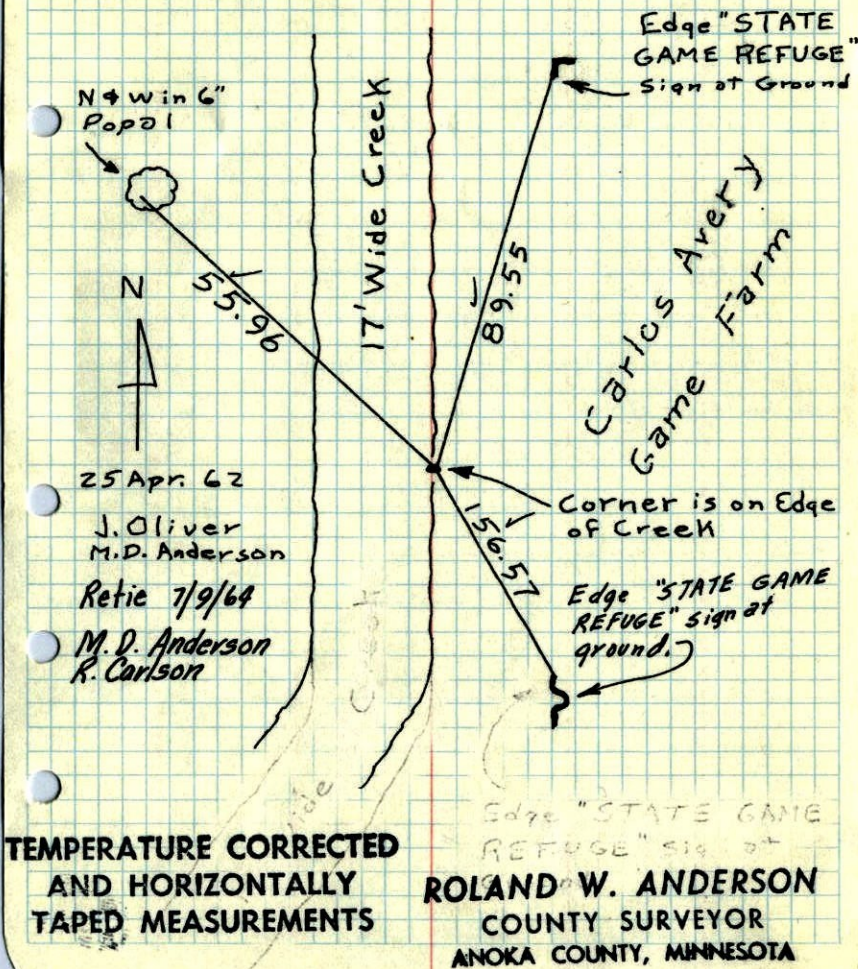 Edge "STATE
GAME REFUGE"
Sign at Ground
N & W in 6"
Popal
17' Wide Creek
Carlos Avery
Game Farm
55.96
89.55
N
25 Apr. 62
J. Oliver
M.D. Anderson
Retie 7/9/64
M.D. Anderson
R. Carlson
Corner is on Edge
of Creek
156.57
Edge "STATE GAME
REFUGE" sign at
ground.
Creek
Wide
Edge "STATE GAME
REFUGE" Sig at
TEMPERATURE CORRECTED
AND HORIZONTALLY
TAPED MEASUREMENTS
ROLAND W. ANDERSON
COUNTY SURVEYOR
ANOKA COUNTY, MINNESOTA